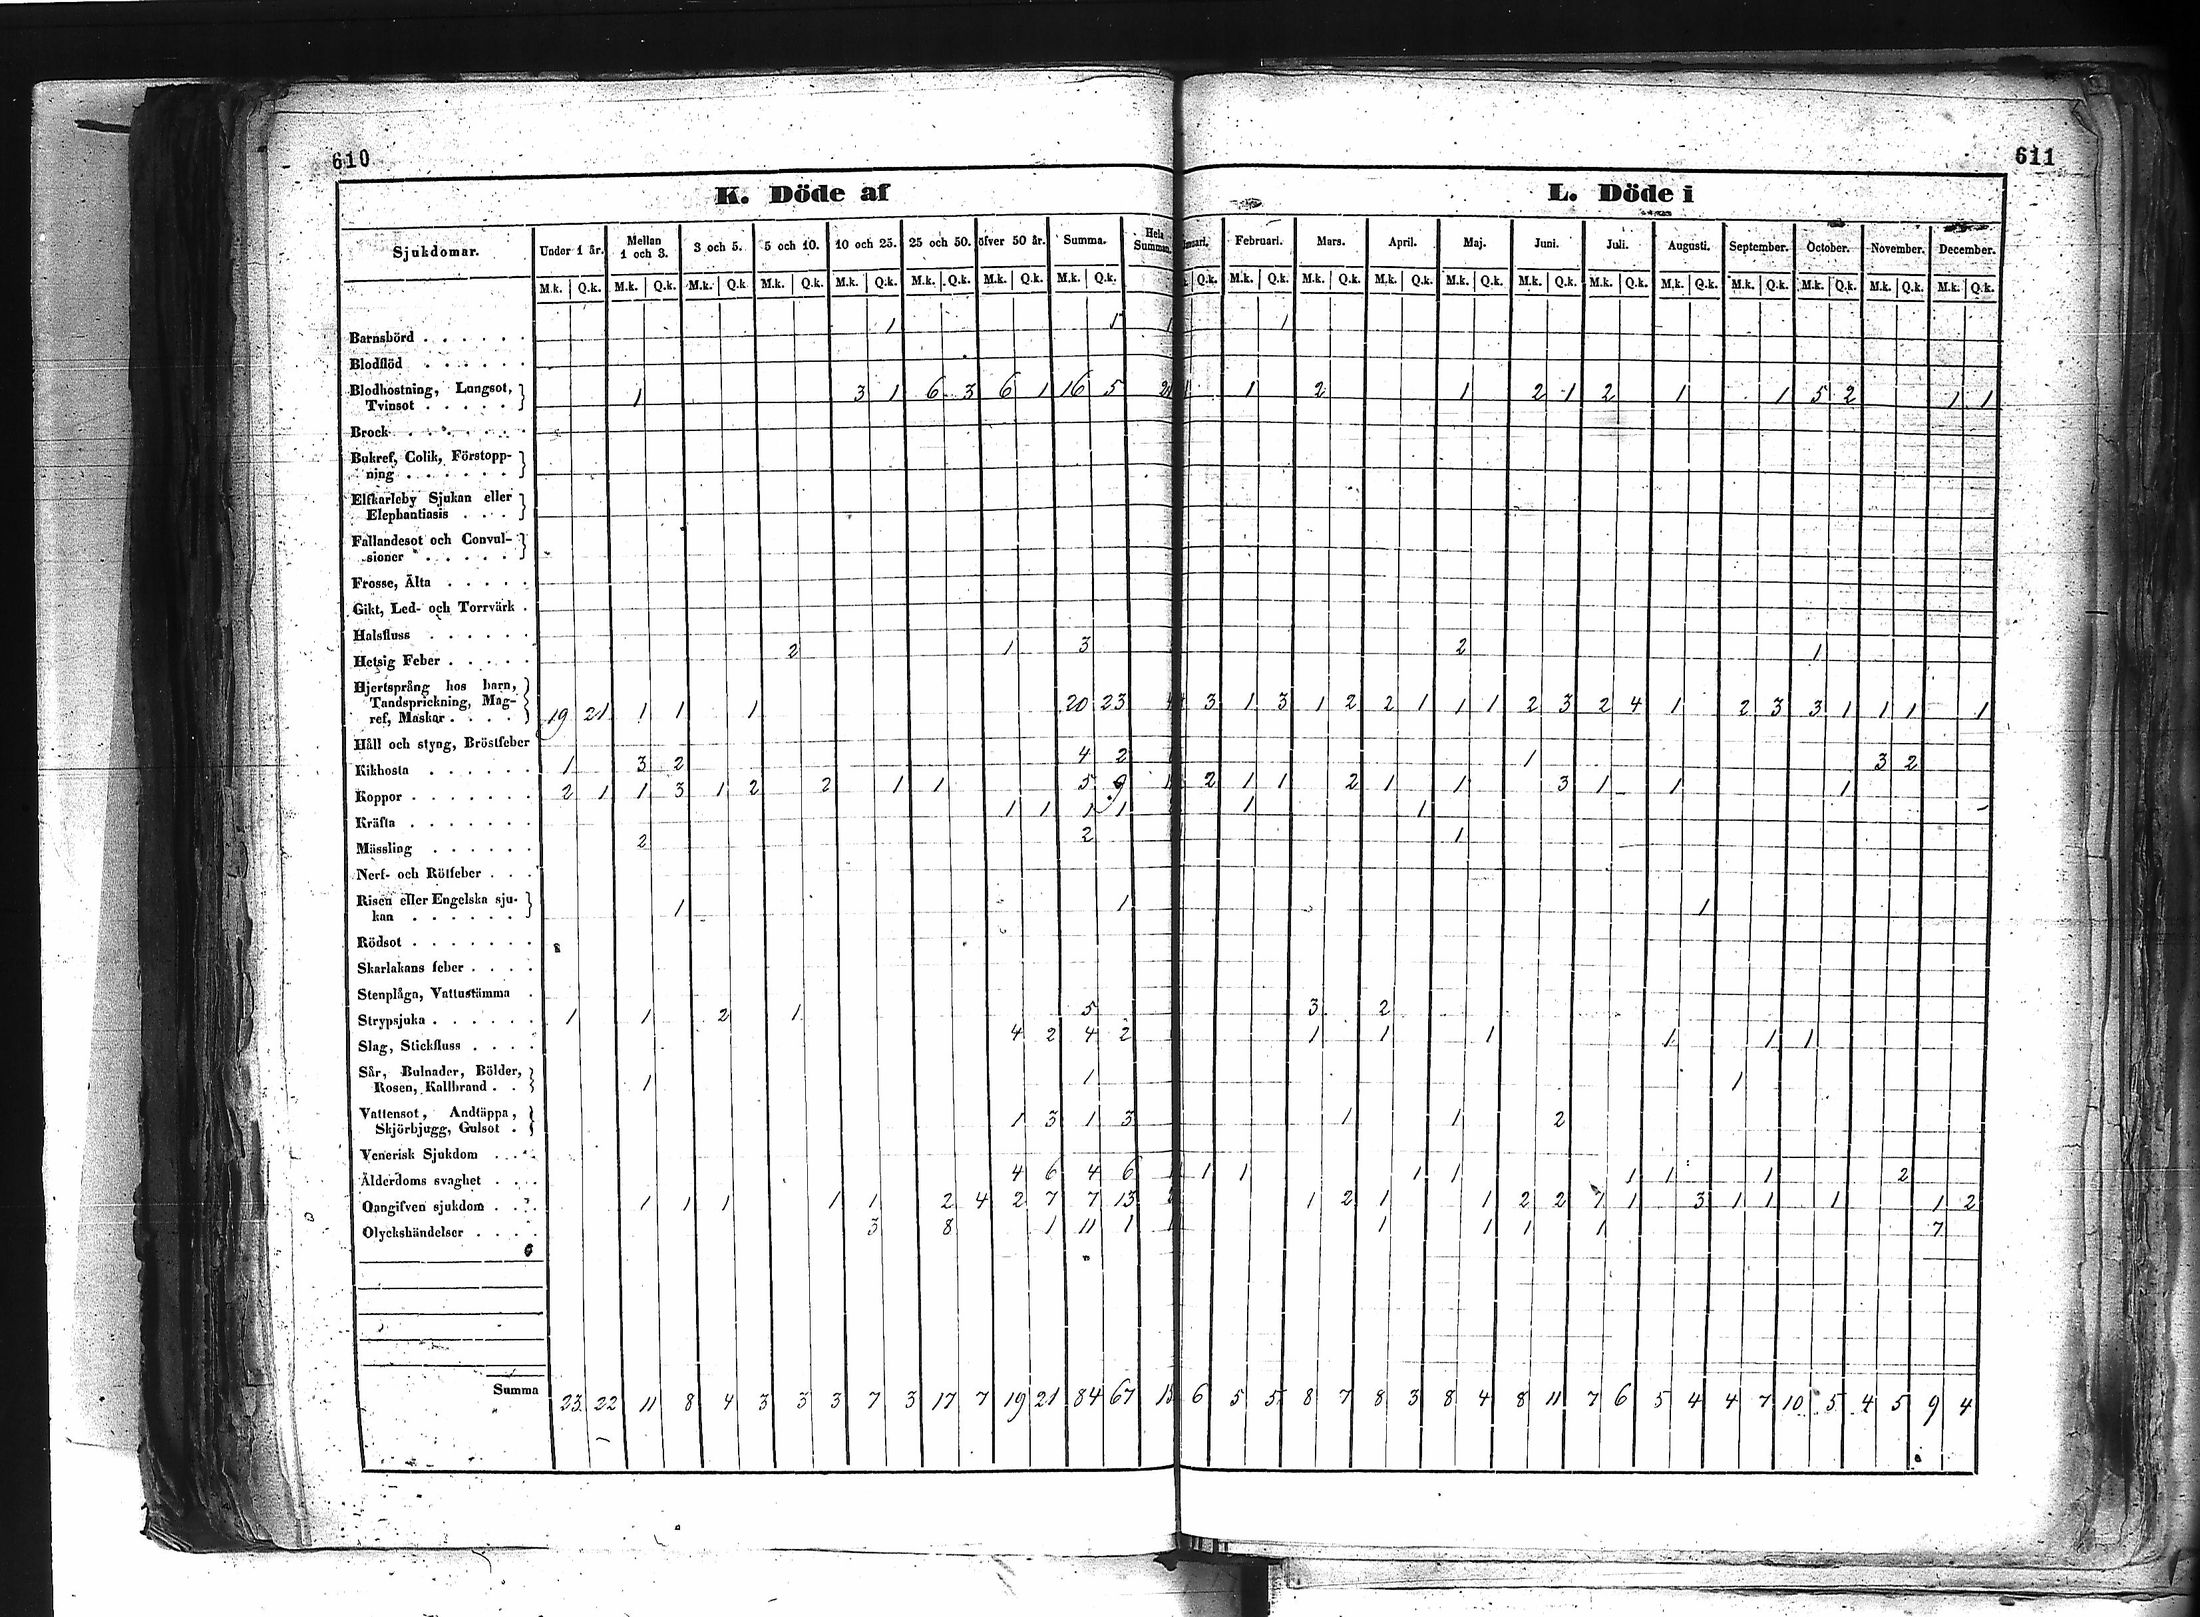 610
611
K. Döde af
L. Döde i
Sjukdomar. Under 1 år. Mellan 1 och 3. 3 och 5. 5 och 10. 10 och 25. 25 och 50. öfver 50 år. Summa. Hela Summan. Februari. Mars. April. Maj. Juni. Juli. Augusti. September. October. November. December.
M.k. Q.k. M.k. Q.k. M.k. Q.k. M.k. Q.k. M.k. Q.k. M.k. Q.k. M.k. Q.k. M.k. Q.k. Q.k. M.k. Q.k. M.k. Q.k. M.k. Q.k. M.k. Q.k. M.k. Q.k. M.k. Q.k. M.k. Q.k. M.k. Q.k. M.k. Q.k. M.k. Q.k. M.k. Q.k.
Barnsbörd . . . . . . 1 1 1 1
Blodflöd . . . . . .
Blodhostning, Lungsot,
Tvinsot . . . . . 1 3 1 6 3 6 1 16 5 21 1 1 2 1 2 1 2 1 1 5 2 1 1
Brock . . . . . . .
Bukref, Colik, Förstopp-
ning . . . . . .
Elfkarleby Sjukan eller
Elephantiasis . . .
Fallandesot och Convul-
sioner . . . . .
Frosse, Älta . . . . .
Gikt, Led- och Torrvärk .
Halsfluss . . . . . .
Hetsig Feber . . . . . 2 1 3 2 1
Hjertsprång hos barn,
Tandsprickning, Mag-
ref, Maskar . . . . 19 21 1 1 1 20 23 4 3 1 3 1 2 2 1 1 1 2 3 2 4 1 2 3 3 1 1 1 1
Håll och styng, Bröstfeber
Kikhosta . . . . . . 1 3 2 4 2 1 3 2
Koppor . . . . . . . 2 1 1 3 1 2 2 1 1 5 9 1 2 1 1 2 1 1 3 1 1 1
Kräfta . . . . . . . 1 1 1 1 1 1
Mässling . . . . . . 2 2 1
Nerf- och Rötfeber . . .
Risen eller Engelska sju-
kan . . . . . . 1 1 1
Rödsot . . . . . . .
Skarlakans feber . . . .
Stenplåga, Vattustämma .
Strypsjuka . . . . . . 1 1 2 1 5 3 2
Slag, Stickfluss . . . . 4 2 4 2 1 1 1 1 1 1
Sår, Bulnader, Bölder,
Rosen, Kallbrand . . 1 1 1
Vattensot, Andtäppa,
Skjörbjugg, Gulsot . 1 3 1 3 1 1 2
Venerisk Sjukdom . . . .
Ålderdoms svaghet . . . . 4 6 4 6 1 1 1 1 1 1 1 1 2
Oangifven sjukdom . . . 1 1 1 1 1 2 4 2 7 7 13 2 1 2 1 1 2 2 1 3 1 1 1 1 2
Olyckshändelser . . . . 3 8 1 11 1 1 1 1 1 1 7
Summa 23 22 11 8 4 3 3 3 7 3 17 7 19 21 84 67 15 6 5 5 8 7 8 3 8 4 8 11 7 6 5 4 4 7 10 5 4 5 9 4